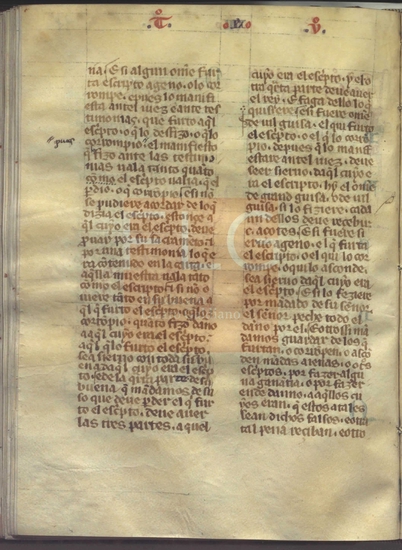 T
V
na. E si algun ome fur
ta escripto ageno. o lo cor
rompe. e pues lo manifi
esta antel iuez e ante tes
timonias. que furto aquel
escripto. o q̃ lo desfizo. o q̃ lo
corrompio. e el manifiesto
q̃ fizo ante las testimo
nias uala tanto quato
como el escripto ualia. q̃ el
no se pudiere acordar de lo q̃
dizia el escripto. estonçe a
quel cuyo era el escripto. deue
prouar por su sacramento e
por una testimonia lo que
era contenido en la carta. e
aquella muestra uala tanto
como el escripto. e si no o
uiere tanto en sus buenas a
quel q̃ furto el escripto. o q̃ lo
corrompio. quanto fizo danno
a aquel cuyo era el escripto.
aquel q̃ lo furto el escripto.
sea sieruo con toda su bu
ena daquel cuyo era el escrip
to. e de la quarta parte de su
buena q̃ mandamos de su
so que deue perder el q̃ fur
to el escripto. deue auer
las tres partes. aquel
cuyo era el escripto. y el otro
quarta parte deue auer
el rey. E faga dello lo q̃
quisiere. e si fuere ome
de uil guisa. el qui furta
el escripto. o el q̃ lo corrom
pio. depues que lo mani
festare antel iuez. deue
seer sieruo. daquel cuyo e
ra el escripto. hy el ome
de grand guisa. o de uil
guisa. si lo fiziere. cada
un dellos deue recebir
c. açotes. E si fuere si
eruo ageno. e q̃ furta
el escripto. o el qui lo cor
rompe. o qui lo asconde.
sea sieruo daquel cuyo era
el escripto. E si lo fiziere
por mandado de su sennor.
el sennor peche todo el
danno por el. E otrossi man
damos guardar de los q̃
furtan. o corrompen. o ascon
den mandas agenas. o otros
escriptos. por fazer algu
na ganancia. o por fazer
ende danno. a aquellos cu
yos eran. que estos atales
sean dichos falsos. e con
tal pena reciban. como